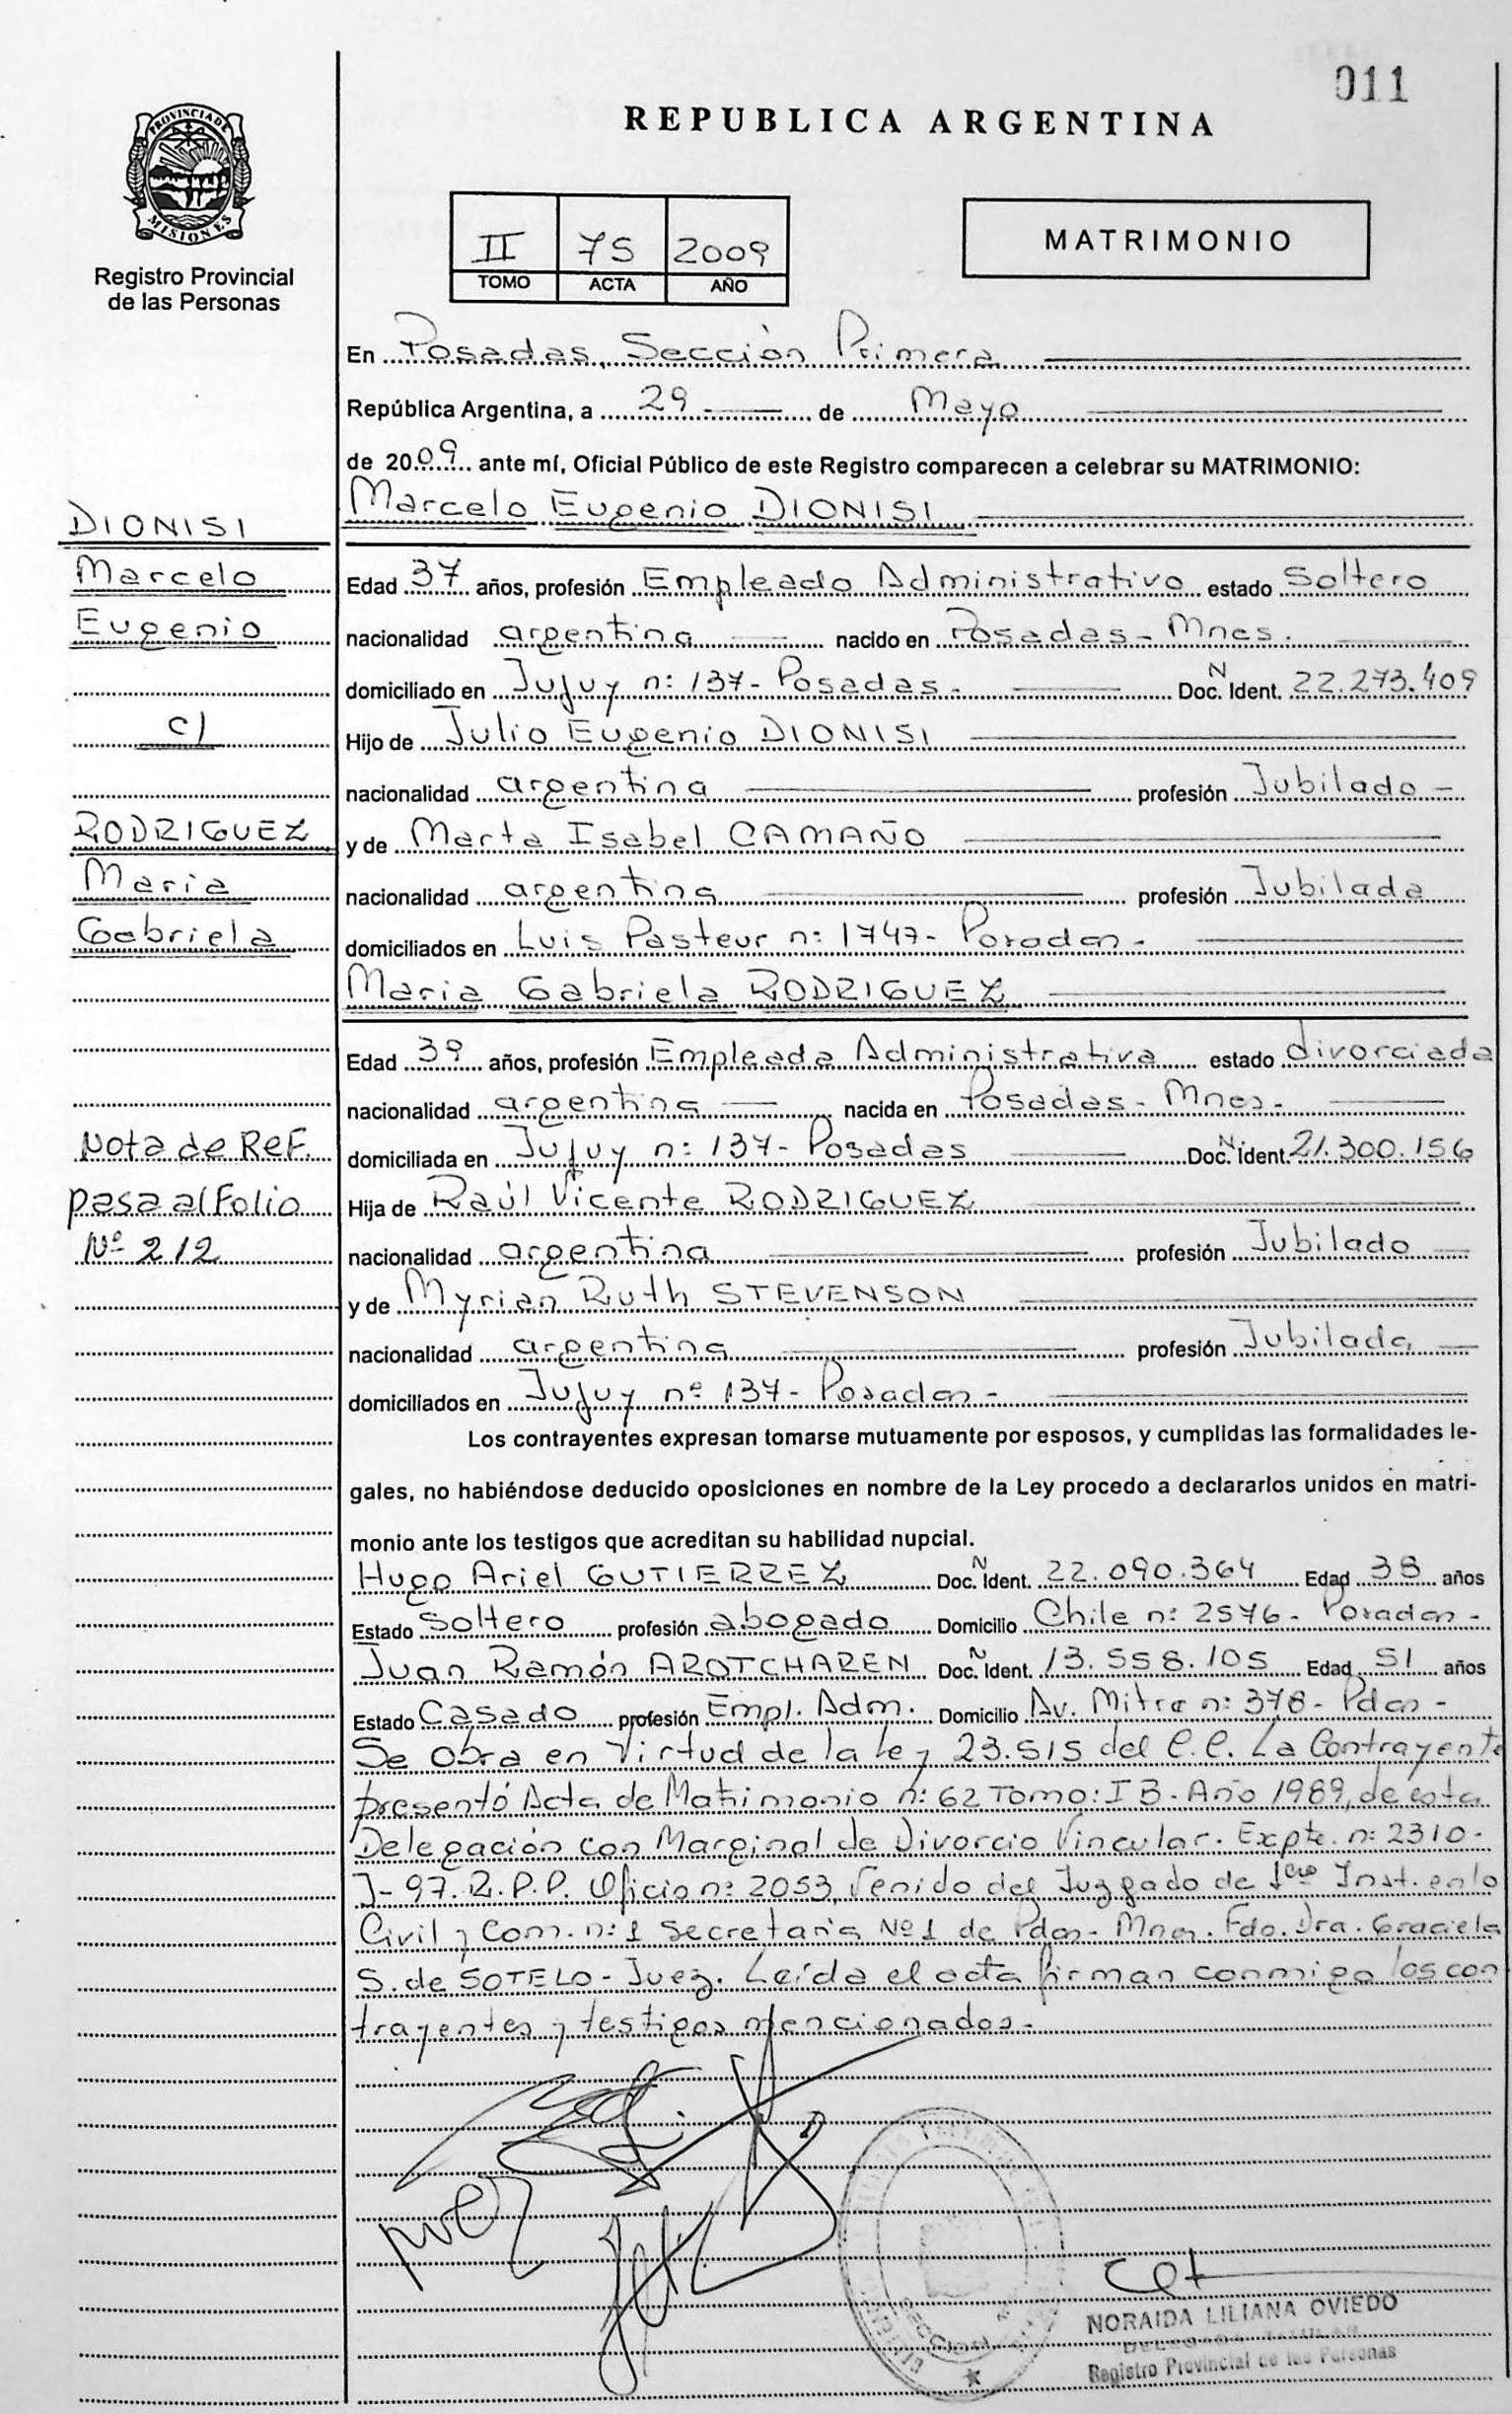 011
REPUBLICA ARGENTINA
PROVINCIA DE
MISIONES
Registro Provincial
de las Personas
II 75 2009
TOMO ACTA AÑO
MATRIMONIO
En Posadas, Sección Primera
República Argentina, a 29 de Mayo
de 2009 ante mí, Oficial Público de este Registro comparecen a celebrar su MATRIMONIO:
DIONISI
Marcelo
Eugenio
c/
RODRIGUEZ
Maria
Gabriela
Nota de Ref.
pasa al Folio
Nº 212
Marcelo Eugenio DIONISI
Edad 37 años, profesión Empleado Administrativo estado Soltero
nacionalidad argentina nacido en Posadas - Mnes.
domiciliado en Jujuy n: 137 - Posadas - Doc. N Ident. 22.273.409
Hijo de Julio Eugenio DIONISI
nacionalidad argentina profesión Jubilado -
y de Marta Isabel CAMAÑO
nacionalidad argentina profesión Jubilada
domiciliados en Luis Pasteur n: 1747 - Posadas -
Maria Gabriela RODRIGUEZ
Edad 39 años, profesión Empleada Administrativa estado divorciada
nacionalidad argentina nacida en Posadas - Mnes -
domiciliada en Jujuy n: 137 - Posadas Doc. N. Ident. 21.300.156
Hija de Raúl Vicente RODRIGUEZ
nacionalidad argentina profesión Jubilado
y de Myrian Ruth STEVENSON
nacionalidad argentina profesión Jubilada
domiciliados en Jujuy nº 137 - Posadas -
Los contrayentes expresan tomarse mutuamente por esposos, y cumplidas las formalidades le-
gales, no habiéndose deducido oposiciones en nombre de la Ley procedo a declararlos unidos en matri-
monio ante los testigos que acreditan su habilidad nupcial.
Hugo Ariel GUTIERREZ Doc. N Ident. 22.090.364 Edad 38 años
Estado Soltero profesión abogado Domicilio Chile n: 2576 - Posadas -
Juan Ramón AROTCHAREN Doc. N Ident. 13.558.105 Edad 51 años
Estado Casado profesión Empl. Adm. Domicilio Av. Mitre n: 378 - Pdas -
Se obra en Virtud de la ley 23.515 del C.C. La Contrayente
presentó Acta de Matrimonio n: 62 Tomo: I B - Año 1989, de esta
Delegación con Marginal de Divorcio Vincular. Expte. n: 2310 -
J - 97. R.P.P. Oficio n: 2053, Venido del Juzgado de 1era Inst. en lo
Civil y Com. n: 1 Secretaria Nº 1 de Pdas - Mnes. Fdo. Dra. Graciela
S. de SOTELO - Juez. Leída el acta firman conmigo los con
trayentes y testigos mencionados -
NORAIDA LILIANA OVIEDO
Registro Provincial de las Personas